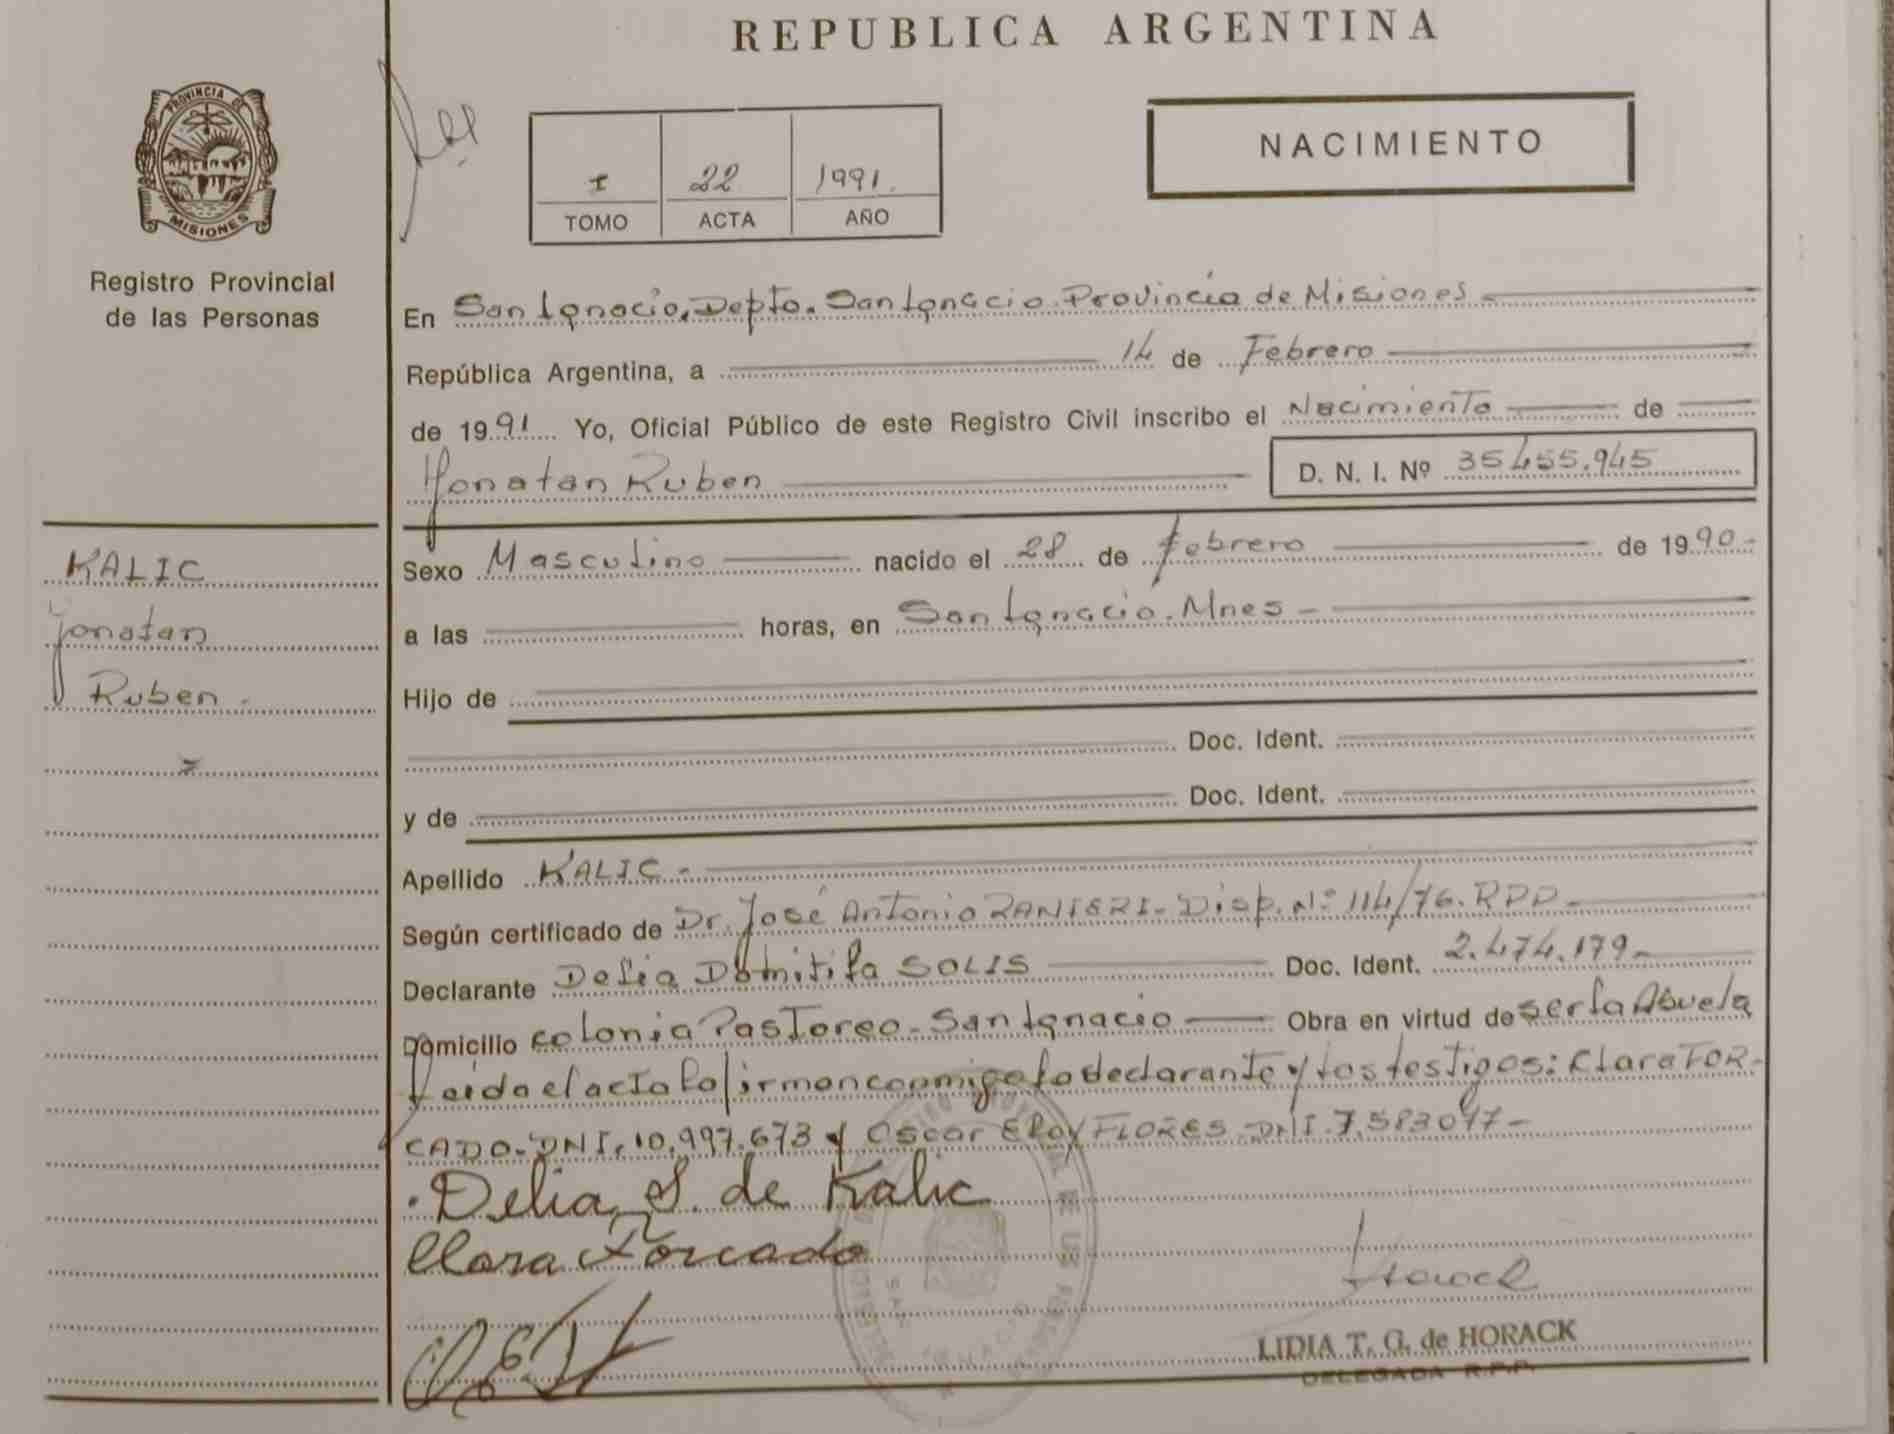 REPUBLICA ARGENTINA
PROVINCIA DE
MISIONES
Registro Provincial
de las Personas
I 22 1991
TOMO ACTA AÑO
NACIMIENTO
En San Ignacio. Depto. San Ignacio. Provincia de Misiones
República Argentina, a 14 de Febrero
de 1991 Yo, Oficial Público de este Registro Civil inscribo el Nacimiento de
Yonatan Ruben D. N. I. Nº 35.455.945
KALIC
Yonatan
Ruben.
Sexo Masculino nacido el 28 de febrero de 1990.
a las horas, en San Ignacio. Mnes
Hijo de
Doc. Ident.
y de Doc. Ident.
Apellido KALIC
Según certificado de Dr. José Antonio RANIERI- Disp. Nº 114/76. RPP
Declarante Delia Domitila SOLIS Doc. Ident. 2.474.179
Domicilio colonia Pastoreo - San Ignacio Obra en virtud de ser la Abuela
Leido el acta la firman conmigo la declarante y los testigos: Clara FOR-
CADO. DNI. 10.997.673 y Oscar Eloy FLORES. DNI. 7.583047-
Delia S. de Kalic
Clara Forcado
Horack
LIDIA T. G. de HORACK
DELEGADA R.P.P.